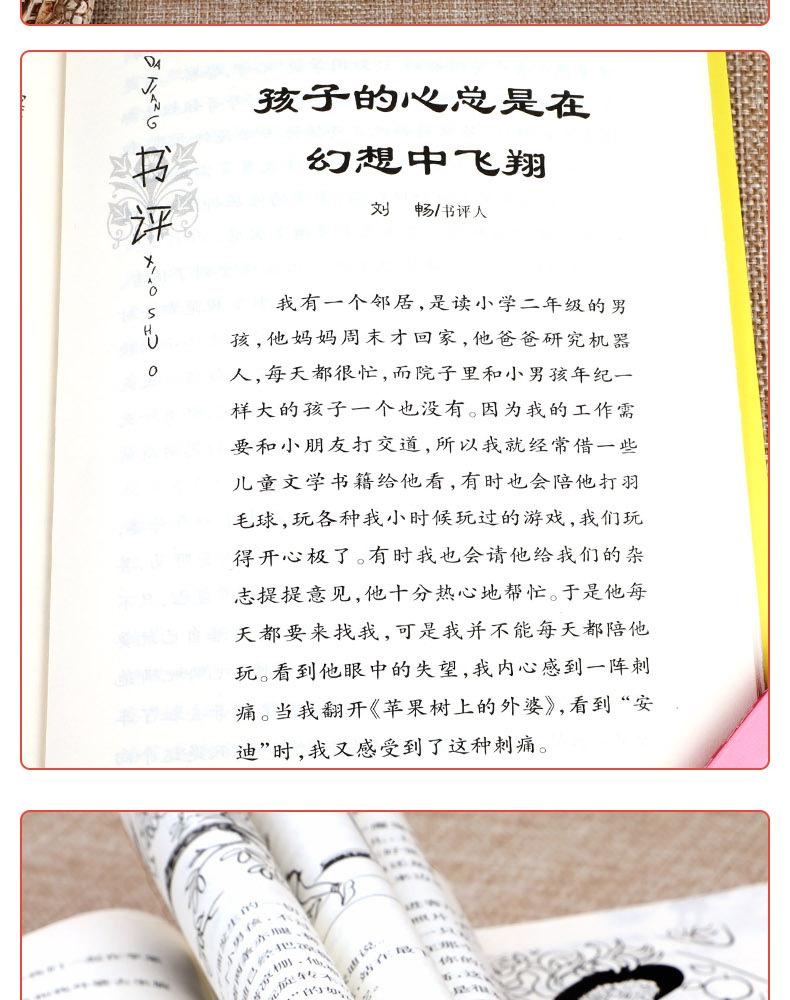 DA
JIANG
书
评
XIAO
SHUO
孩子的心总是在
幻想中飞翔
刘 畅/书评人
我有一个邻居,是读小学二年级的男
孩,他妈妈周末才回家,他爸爸研究机器
人,每天都很忙,而院子里和小男孩年纪一
样大的孩子一个也没有。因为我的工作需
要和小朋友打交道,所以我就经常借一些
儿童文学书籍给他看,有时也会陪他打羽
毛球,玩各种我小时候玩过的游戏,我们玩
得开心极了。有时我也会请他给我们的杂
志提提意见,他十分热心地帮忙。于是他每
天都要来找我,可是我并不能每天都陪他
玩。看到他眼中的失望,我内心感到一阵刺
痛。当我翻开《苹果树上的外婆》,看到“安
迪”时,我又感受到了这种刺痛。